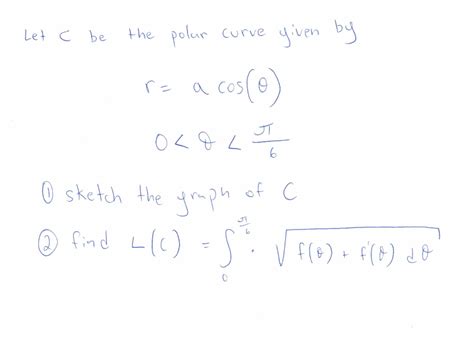 Let C be the polar curve given by
r = a cos(θ)
0 < θ < π/6
① sketch the graph of C
② find L(C) = ∫₀^{π/6} · √(f(θ) + f'(θ) dθ)